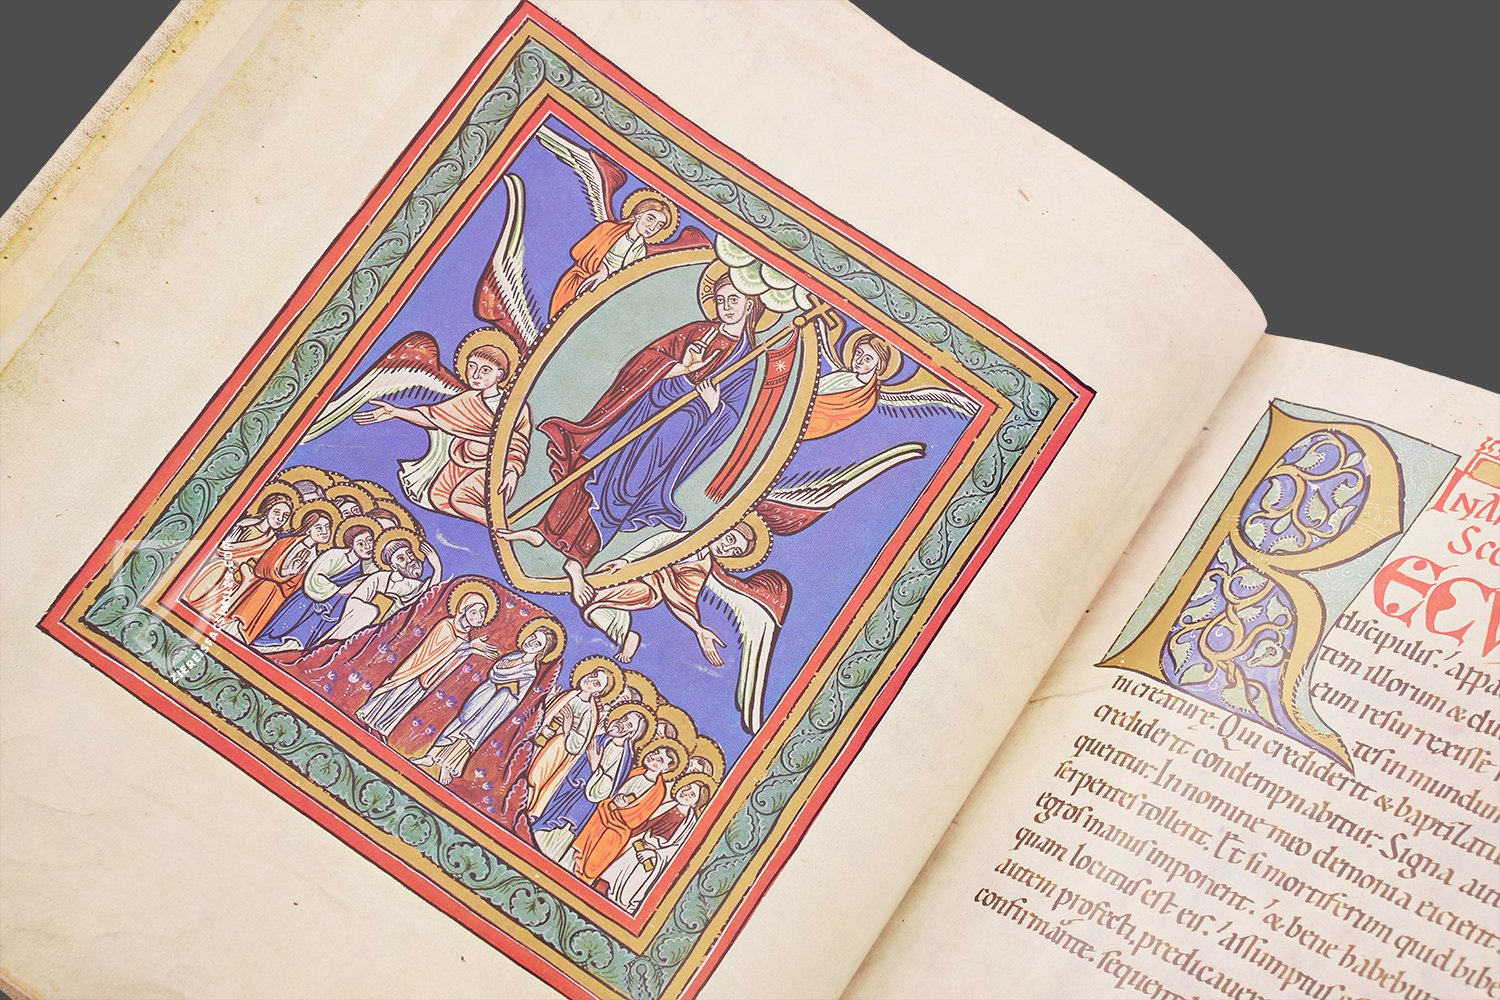 R
INA
Sco
ECV
discipulis. appa
tem illorum & du
eum resurrexisse
tes in mundum
ni creature. Qui crediderit & baptizatus
crediderit condempnabitur. Signa aut
quentur. In nomine meo demonia eicient.
serpentes tollent. Et si mortiferum quid bibe
egros manus imponent. & bene habebun
quam locutus est eis. assumptus
autem profecti. predicaver
confirmante. sequent
ZIEREIS